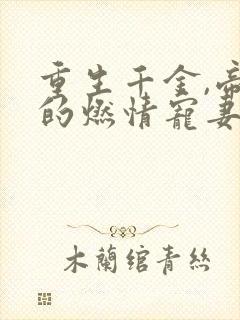 重生千金,帝
的燃情宠妻
木蘭绾青絲